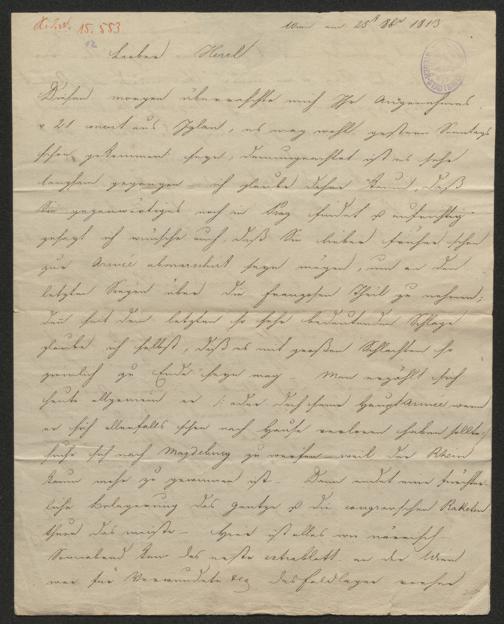 15.553
Wien am 25t 8br 1813
12
Lieber
Diesen morgen überraschte mich Ihr Angenehmes
v 21 aus Iglau, es mag wohl gestern Sonntags
schon gekommen seyn, demungeachtet ist es sehr
langsam gegangen ich glaube daher kaum, daß
Sie gegenwärtiges noch in Prag findet & aufrichtig
gesagt ich wünsche auch, daß Sie lieber früher schon
zur Armée abmarschirt seyn mögen, um an den
letzten Siegen über die Franzosen Theil zu nehmen;
Denn seit den letzten so sehr bedeutenden Schlage
glaube ich selbst, daß es mit großen Schlachten so
ziemlich zu Ende seyn mag – Man erzählt sich
heute allgemein er oder doch seine Haupt Armee wenn
er sich allenfalls schon nach Hause verloren haben sollte
sich nach Magdeburg zu werfen weil der Rhein
kaum mehr zu gewinnen ist – Dann endet eine fürchter-
liche Belagerung das Ganze & die congrevschen Raketen
thun das meiste – Hier ist alles wie närrisch –
Sonnabend kam das erste extrablatt an der Wien
war für Verwundete